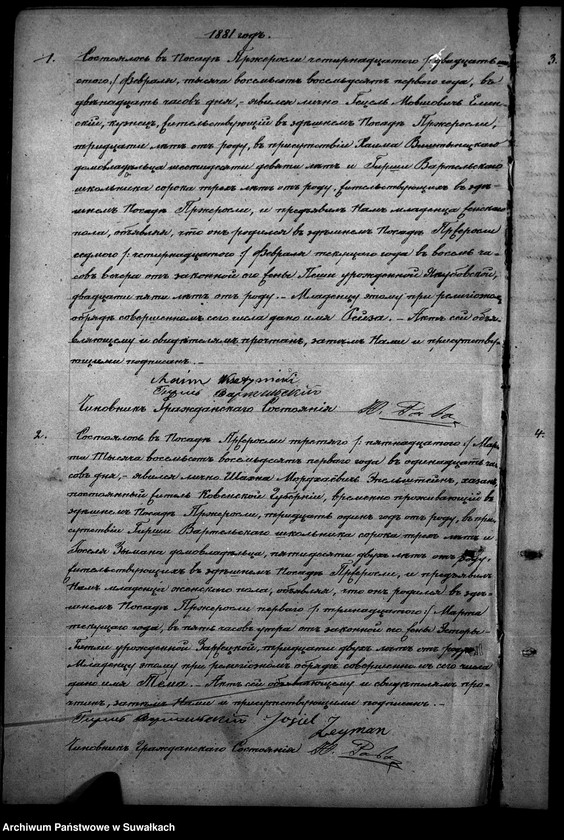 1881 годъ.
1.
Состоялось въ Посадѣ Пржеросли четырнадцатаго /: двадцать
шестаго :/ Февраля, тысяча восемьсотъ восемьдесятъ перваго года, въ
двѣнадцать часовъ дня, – явился лично Гецель Мовшовичъ
кузнецъ, жительствующій въ здѣшнемъ Посадѣ Пржеросли,
тридцати лѣтъ отъ роду, въ присутствіи Хаима
домовладѣльца шестидесяти девяти лѣтъ и Гирши Вартельскаго
школьника сорока трехъ лѣтъ отъ роду, жительствующихъ въ здѣ-
шнемъ Посадѣ Пржеросли, и предъявилъ Намъ младенца женскаго
пола, объявляя, что онъ родился въ здѣшнемъ Посадѣ Пржеросли
седьмаго /: четырнадцатаго :/ Февраля текущаго года въ восемь ча-
совъ вечера отъ законной его жены Пеши урожденной Якубовской,
двадцати пяти лѣтъ отъ роду. – Младенцу этому при религіозномъ
обрядѣ совершенномъ сего числа дано имя Рейза. – Актъ сей объя-
вляющему и свидѣтелямъ прочтенъ, затѣмъ Нами и присутствую-
щими подписанъ. –
Чиновникъ Гражданскаго Состоянія
2.
Состоялось въ Посадѣ Пржеросли третьяго /: пятнадцатаго :/ Мар-
та тысяча восемьсотъ восемьдесятъ перваго года въ одинадцать ча-
совъ дня, – явился лично Мордхаевичъ
постоянный житель Ковенской Губерніи, временно проживающій въ
здѣшнемъ Посадѣ Пржеросли, тридцать одинъ годъ отъ роду, въ при-
сутствіи Гирши Вартельскаго школьника сорока трехъ лѣтъ и
Зымана домовладѣльца, пятидесяти двухъ лѣтъ отъ роду,
жительствующихъ въ здѣшнемъ Посадѣ Пржеросли, и предъявилъ
Намъ младенца женскаго пола, объявляя, что онъ родился въ здѣ-
шнемъ Посадѣ Пржеросли перваго /: тринадцатаго :/ Марта
текущаго года, въ пять часовъ утра отъ законной его жены Эстеры-
урожденной Зарецкой, тридцати двухъ лѣтъ отъ роду.
Младенцу этому при религіозномъ обрядѣ совершенномъ сего числа
дано имя Тема. – Актъ сей объявляющему и свидѣтелямъ про-
чтенъ, затѣмъ Нами и присутствующими подписанъ. –
Josiel Zeyman
Чиновникъ Гражданскаго Состоянія
3.
4.
Archiwum Państwowe w Suwałkach